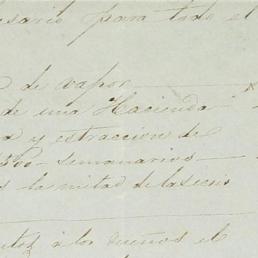 esario para todo el
de vapor
de una Hacienda
y estraccion de
360 semanarios
la mitad de la seccis
a los dueños el